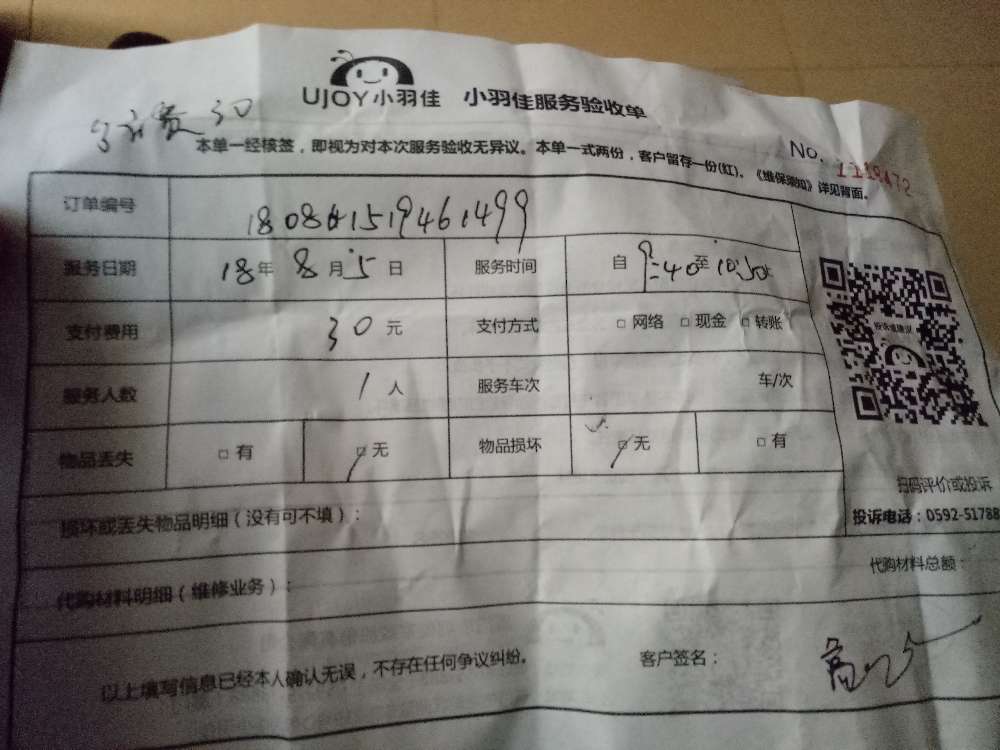 UJOY小羽佳 小羽佳服务验收单
费30
No. 1118472
本单一经核签，即视为对本次服务验收无异议。本单一式两份，客户留存一份(红)。《维保须知》详见背面。
订单编号
服务日期 18年 8月 5日 服务时间 自 9:40 至 10:50
支付费用 30元 支付方式 □ 网络 □ 现金 □ 转账
服务人数 1人 服务车次 车/次
物品丢失 □ 有 □ 无 物品损坏 □ 无 □ 有
投诉或建议
扫码评价或投诉
投诉电话：0592-51788
损坏或丢失物品明细（没有可不填）：
代购材料明细（维修业务）： 代购材料总额：
以上填写信息已经本人确认无误，不存在任何争议纠纷。 客户签名：